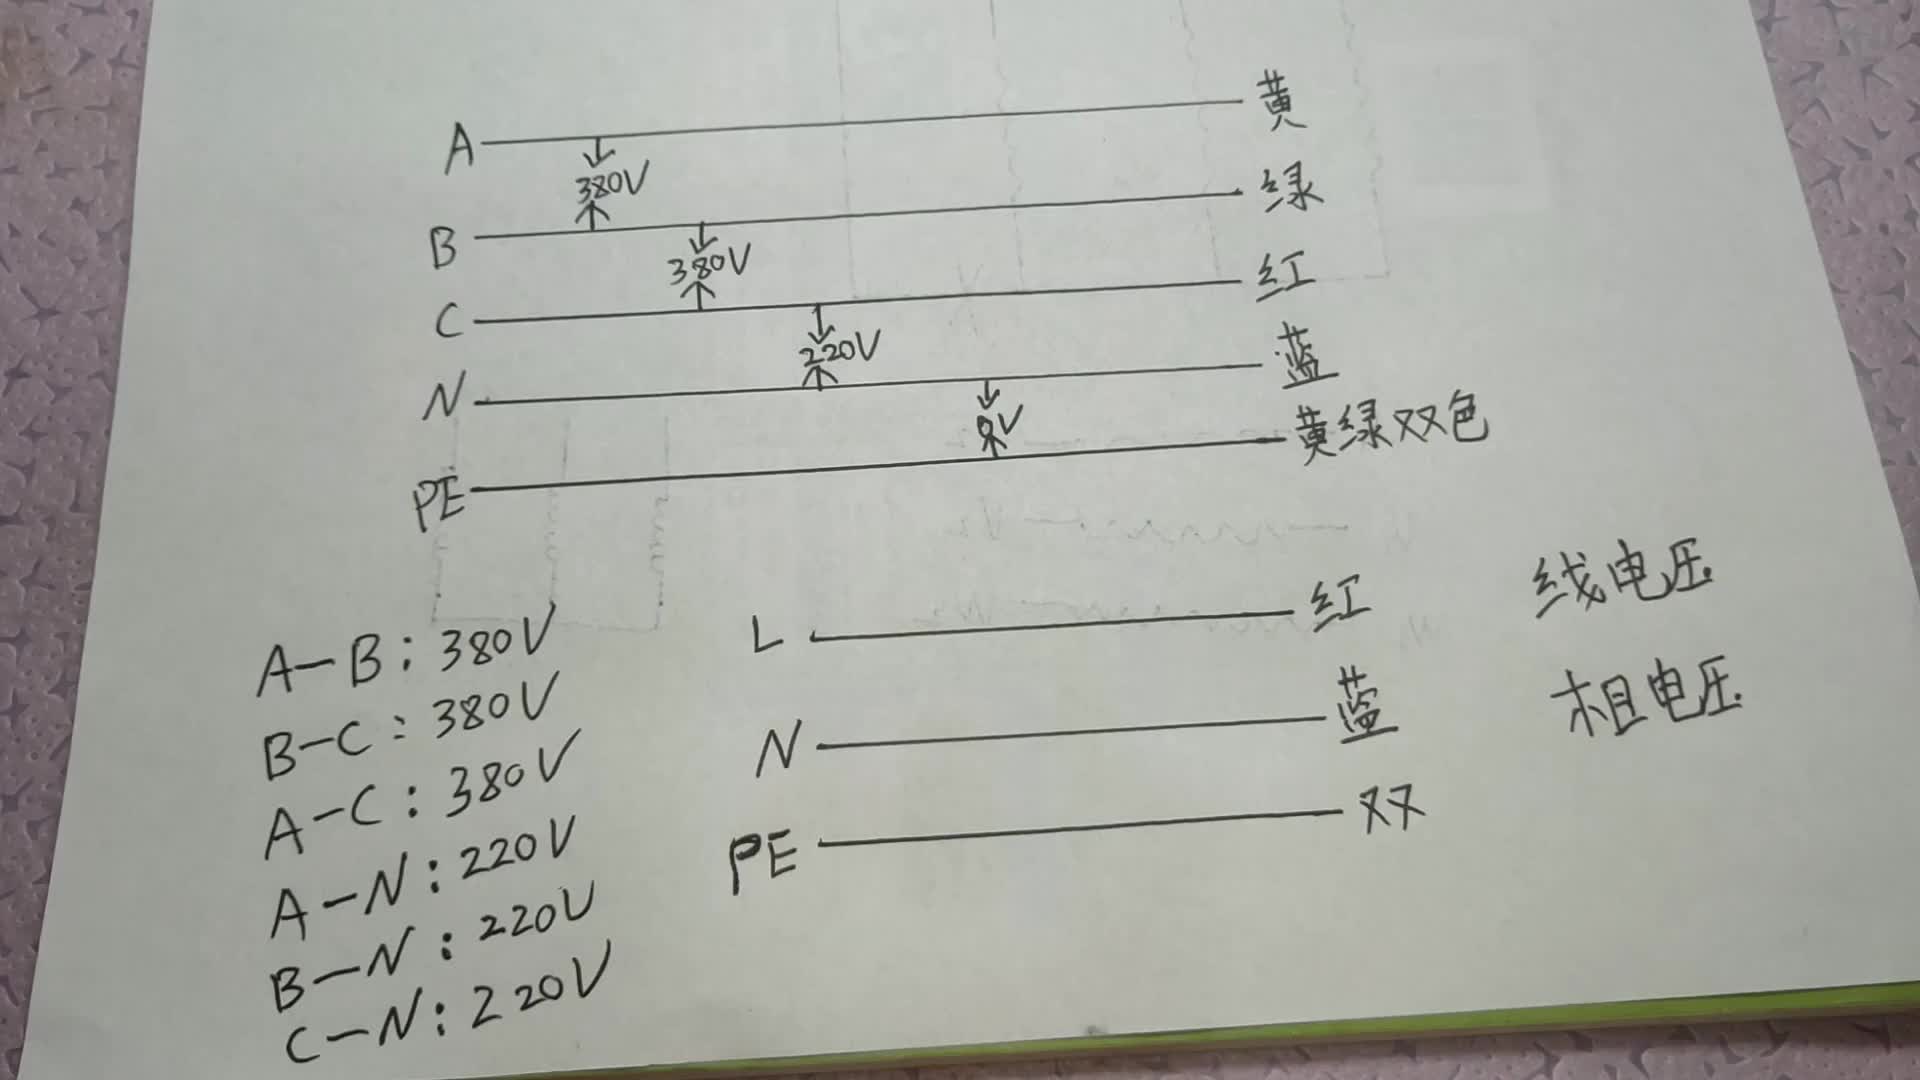 A 黄
380V
B 绿
380V
C 红
220V
N 蓝
0V
PE 黄绿双色
A-B:380V
B-C:380V
A-C:380V
A-N:220V
B-N:220V
C-N:220V
L 红
N 蓝
PE 双
线电压
相电压